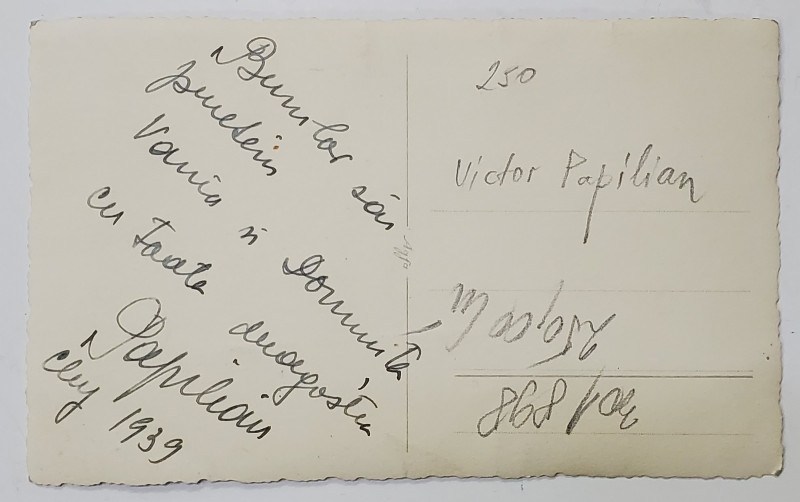 Bunilor săi
prieteni
Vania și Domnița
cu toată dragostea
Papilian
Cluj 1939
250
Victor Papilian